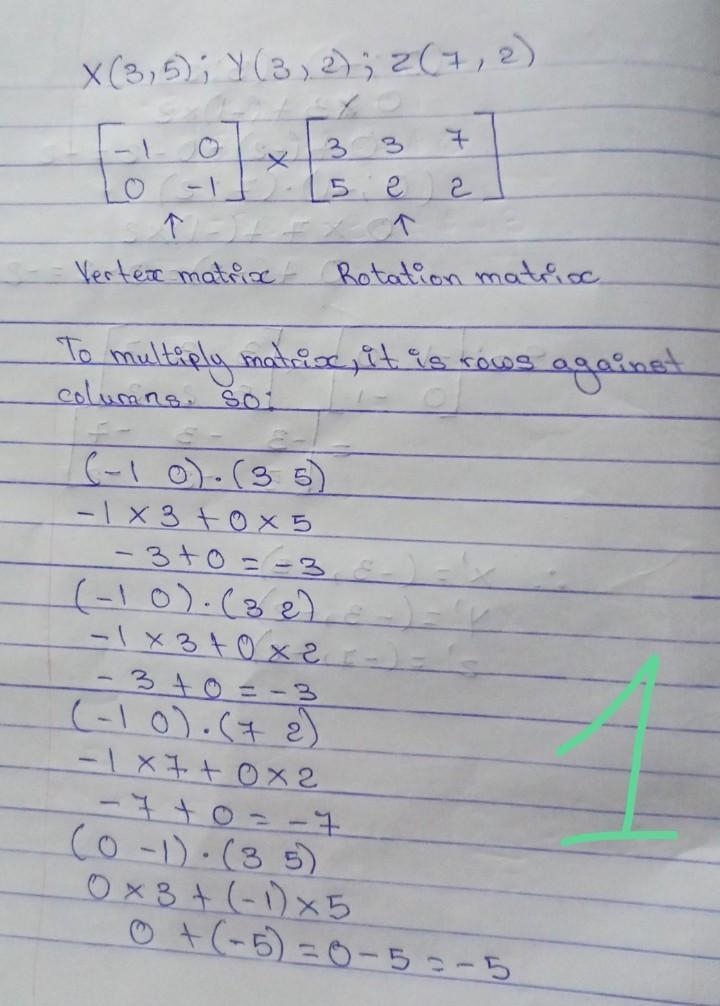 X(3,5); Y(3,2); Z(7,2)
[-1 0] × [3 3 7]
[0 -1] [5 2 2]
↑ ↑
Vertex matrix Rotation matrix
To multiply matrix, it is rows against
columns. So:
(-1 0).(3 5)
-1×3+0×5
-3+0=-3
(-1 0).(3 2)
-1×3+0×2
-3+0=-3
(-1 0).(7 2)
-1×7+0×2
-7+0=-7
(0 -1).(3 5)
0×3+(-1)×5
0+(-5)=0-5=-5
1